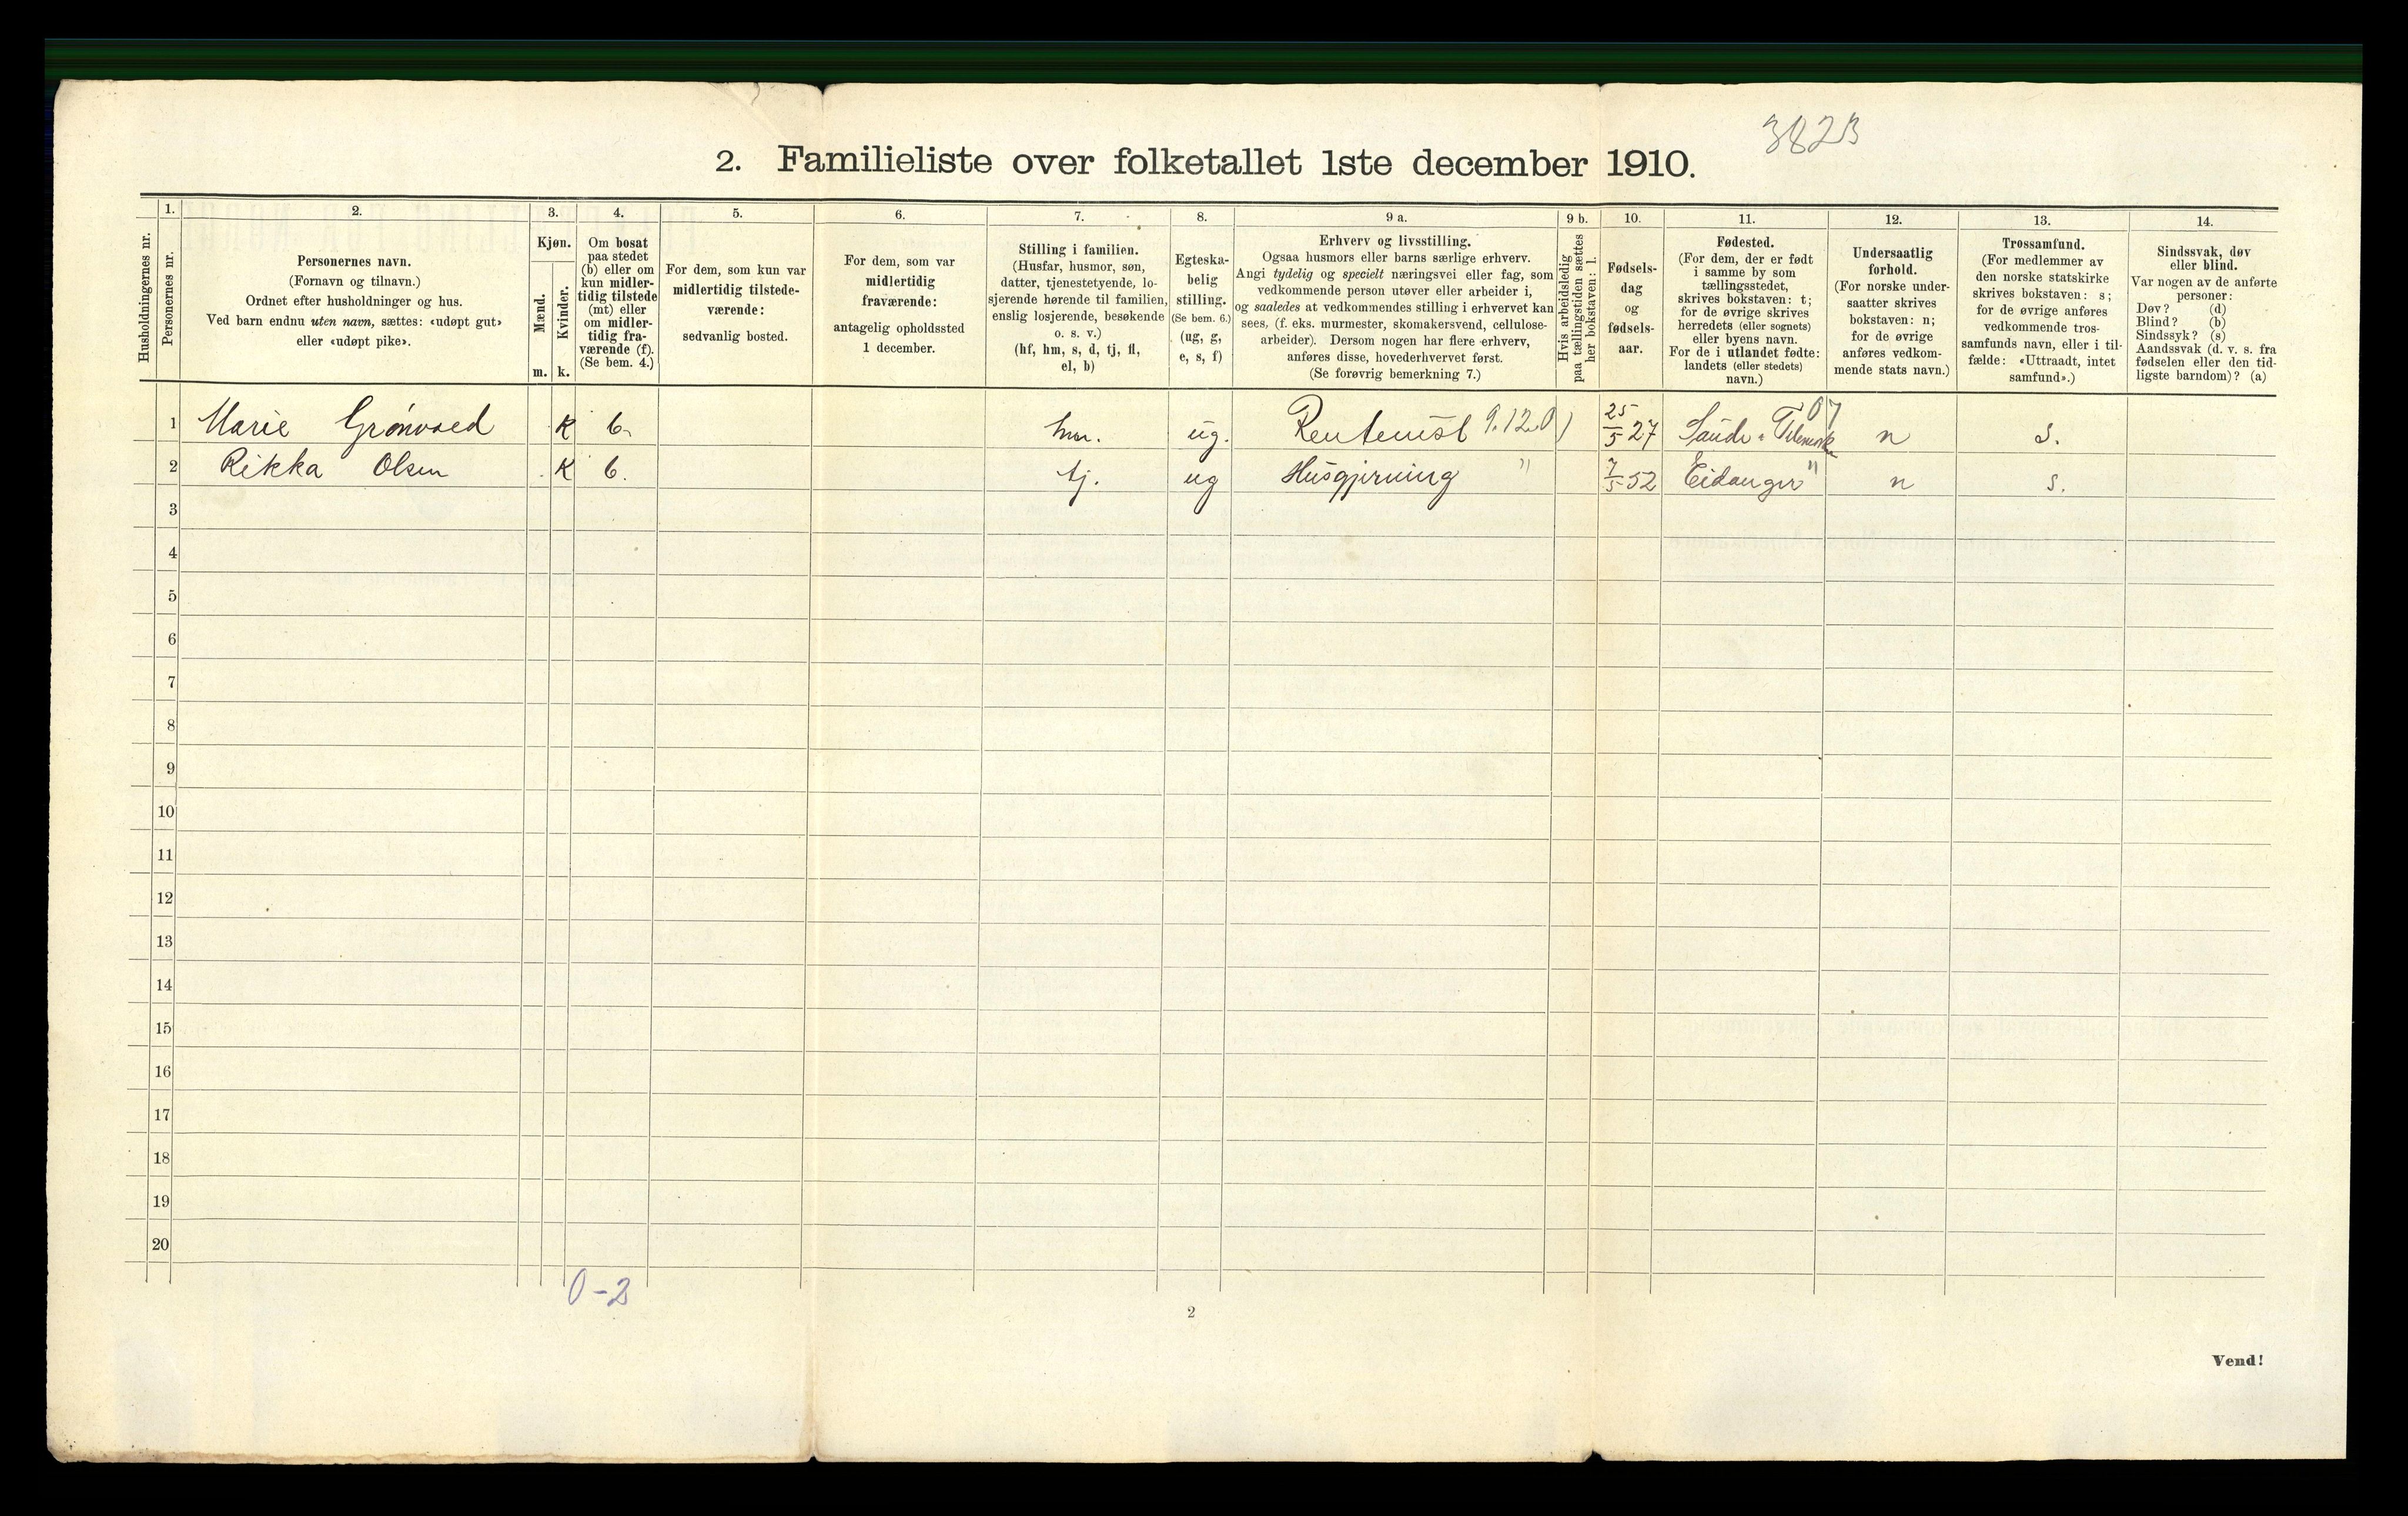 3823
2. Familieliste over folketallet 1ste december 1910.
Husholdningernes nr.
1.
Personernes nr.
2.
Personernes navn.
(Fornavn og tilnavn.)
Ordnet efter husholdninger og hus.
Ved barn endnu uten navn, sættes: «udøpt gut»
eller «udøpt pike».
3.
Kjøn.
Mænd.
Kvinder.
m. k.
4.
Om bosat
paa stedet
(b) eller om
kun midler-
tidig tilstede
(mt) eller
om midler-
tidig fra-
værende (f).
(Se bem. 4.)
5.
For dem, som kun var
midlertidig tilstede-
værende:
sedvanlig bosted.
6.
For dem, som var
midlertidig
fraværende:
antagelig opholdssted
1 december.
7.
Stilling i familien.
(Husfar, husmor, søn,
datter, tjenestetyende, lo-
sjerende hørende til familien,
enslig losjerende, besøkende
o. s. v.)
(hf, hm, s, d, tj, fl,
el, b)
8.
Egteska-
belig
stilling.
(Se bem. 6.)
(ug, g,
e, s, f)
9 a.
Erhverv og livsstilling.
Ogsaa husmors eller barns særlige erhverv.
Angi tydelig og specielt næringsvei eller fag, som
vedkommende person utøver eller arbeider i,
og saaledes at vedkommendes stilling i erhvervet kan
sees, (f. eks. murmester, skomakersvend, cellulose-
arbeider). Dersom nogen har flere erhverv,
anføres disse, hovederhvervet først.
(Se forøvrig bemerkning 7.)
9 b.
Hvis arbeidsledig
paa tællingstiden sættes
her bokstaven: l.
10.
Fødsels-
dag
og
fødsels-
aar.
11.
Fødested.
(For dem, der er født
i samme by som
tællingsstedet,
skrives bokstaven: t;
for de øvrige skrives
herredets (eller sognets)
eller byens navn.
For de i utlandet fødte:
landets (eller stedets)
navn.)
12.
Undersaatlig
forhold.
(For norske under-
saatter skrives
bokstaven: n;
for de øvrige
anføres vedkom-
mende stats navn.)
13.
Trossamfund.
(For medlemmer av
den norske statskirke
skrives bokstaven: s;
for de øvrige anføres
vedkommende tros-
samfunds navn, eller i til-
fælde: «Uttraadt, intet
samfund».)
14.
Sindssvak, døv
eller blind.
Var nogen av de anførte
personer:
Døv? (d)
Blind? (b)
Sindssyk? (s)
Aandssvak (d. v. s. fra
fødselen eller den tid-
ligste barndom)? (a)
1 Marie Grønvoed K b. hm. ug. Renteinst 9.12.0 25/5 27 Saude Telemark 07 n s.
2 Rikka Olsen K b. tj. ug Husgjerning " 7/5 52 Eidanger " n s.
3
4
5
6
7
8
9
10
11
12
13
14
15
16
17
18
19
20
0-2
2
Vend!